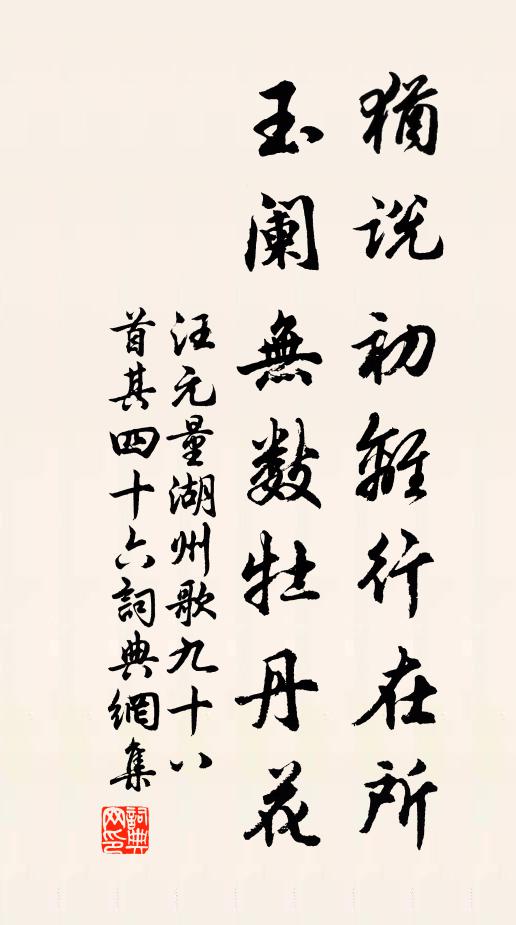 猶説初離行在所
玉闌無數牡丹花
汪元量湖州歌九十八
首其四十六詞典網集
詞典
网印